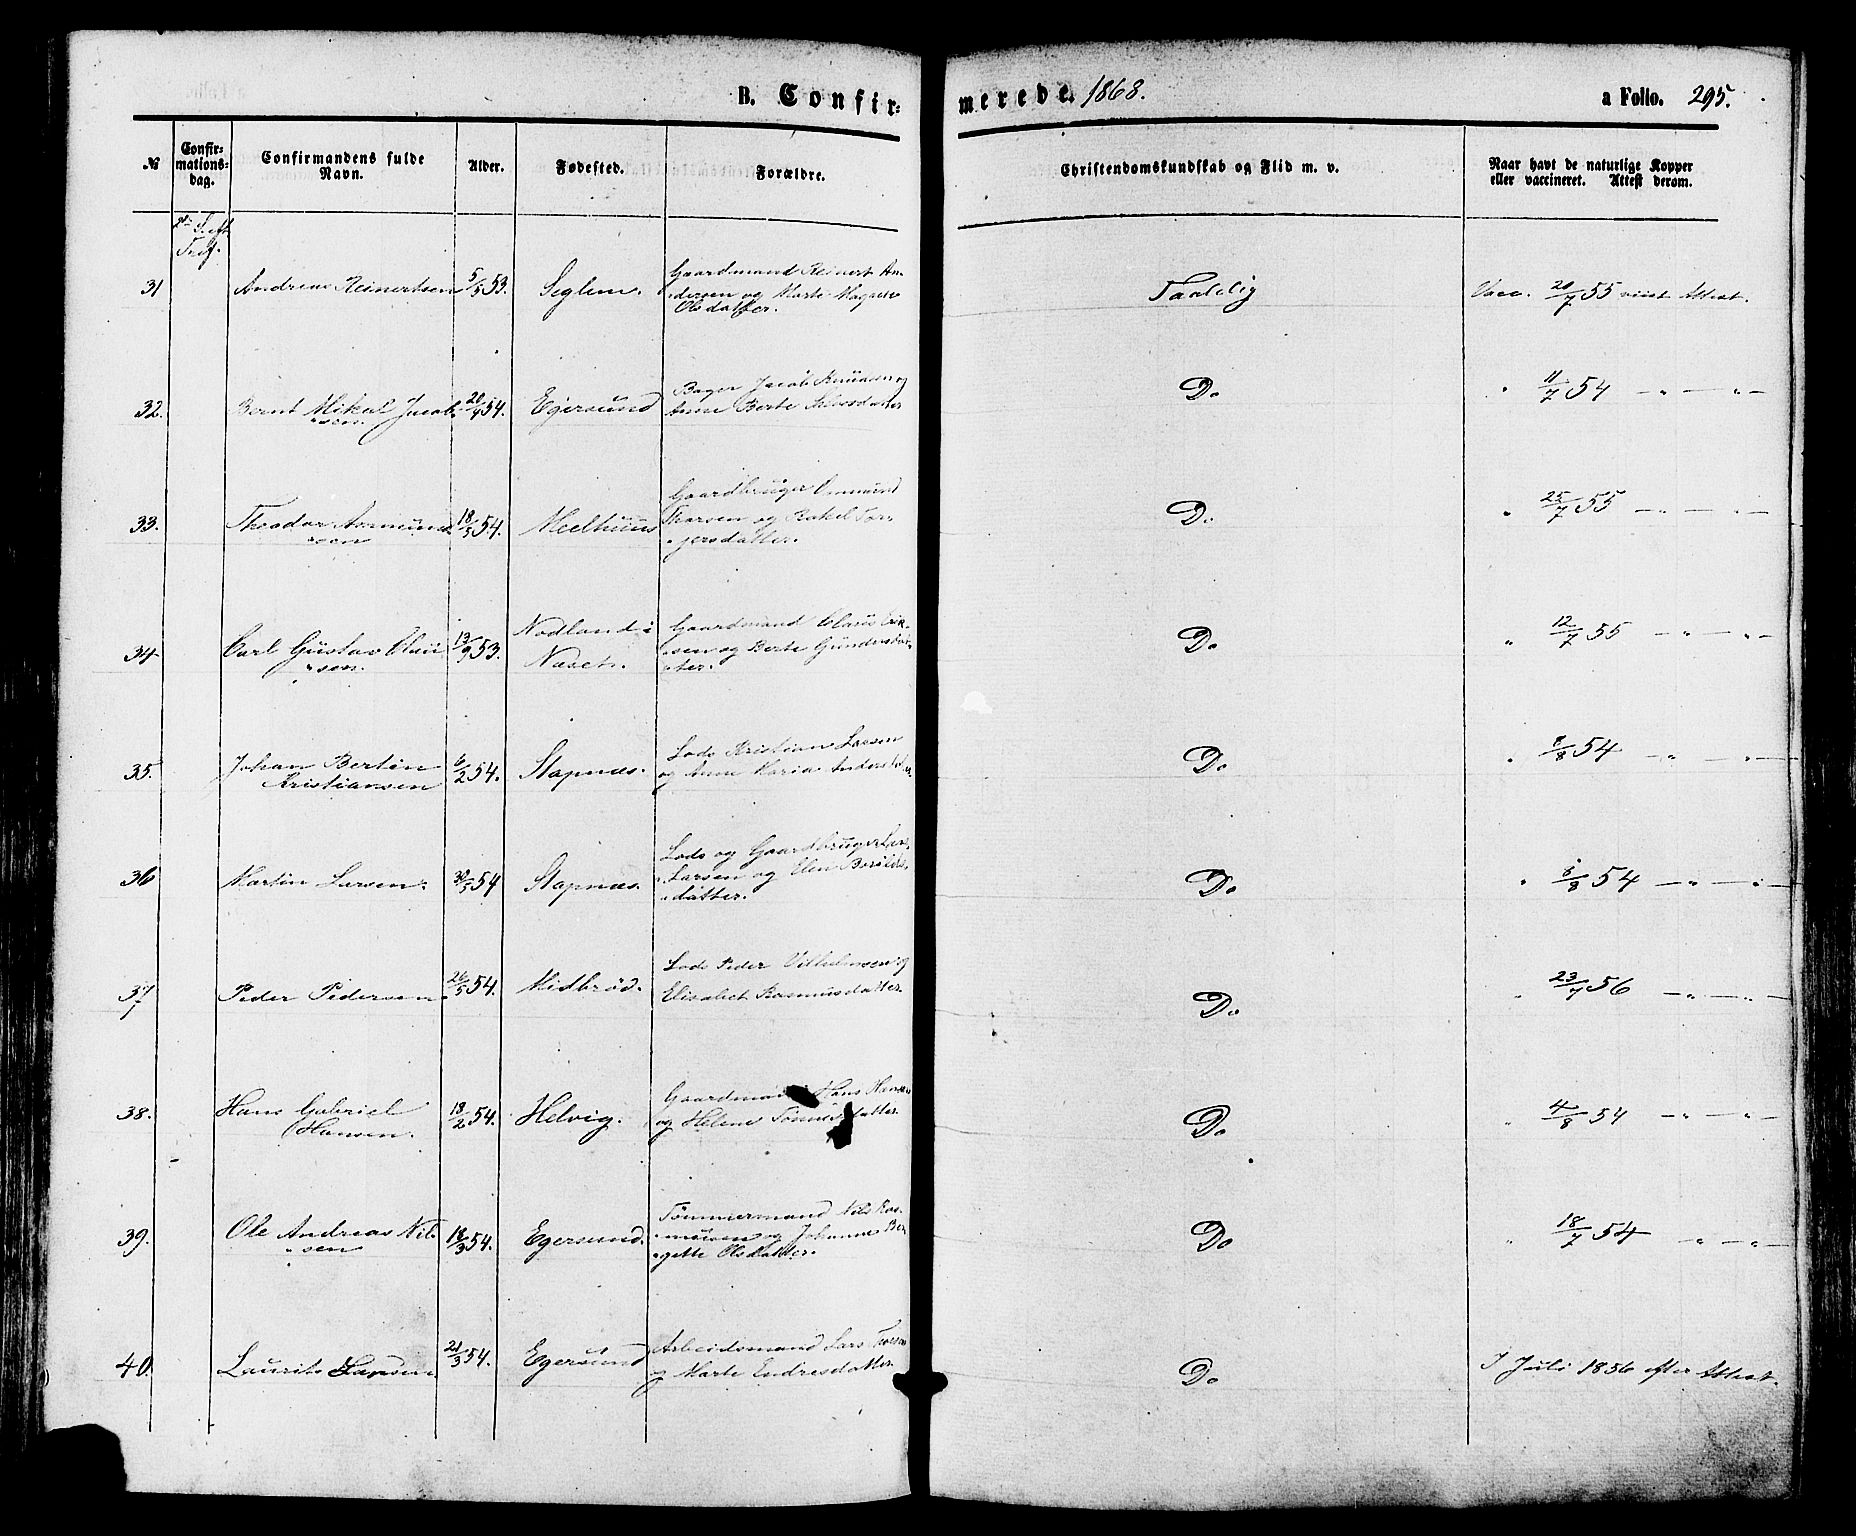 B. Confir= merede. 1868. a Folio. 295.
№ Confir=mations=dag. Confirmandens fulde Navn. Alder. Fødested. Forældre. Christendomskundskab og Flid m. v. Naar havt de naturlige Kopper eller vaccineret. Attest derom.
Tref.
31 Andreas Reinertsen 5/5 53. Seglem. Gaardmand Reinert An-
dersen og Marte Magrete
Olsdatter.
Taalelig Vacc. 20/7 55 viist Attest.
32. Bernt Mikal Jacob- 20/4 54. Egersund Bager Jacob Knudsen og
"sen. Anne Berte
Do " 11/7 54 — " — " —
33. Theodor Ommund 18/5 54. Meelhuus Gaardbruger Ommund
"sen Thorsen og Rakel Tor-
"jersdatter.
Do " 25/7 55 — " — " —
34 Carl Gustav Claü 13/9 53. Nodland i Gaardmand Claus Erik-
"sen. Næset. "sen og Berte Gundersdat-
"ter.
Do " 12/7 55 — " — " —
35. Johan Bertin 6/2 54. Stapnæs. Lods Kristian Larsen
Kristiansen og Anne Maria
Do " 8/8 54 — " — " —
36 Martin Larsen. 30/5 54 Stapnæs. Lods og Gaardbruger Lars
Larsen og Elen
"datter.
Do " 8/8 54 — " — " —
37 Peder Pedersen 26/5 54. Midbrød. Lods Peder Vilhelmsen og
Elisabet Rasmusdatter
Do " 23/7 56 — " — " —
38. Hans Gabriel 18/2 54. Helvig. Gaardmand Hans Hansen
Hansen. og Helene Tønnesdatter
Do " 4/8 54 — " — " —
39. Ole Andreas Nil- 18/3 54. Egersund. Tømmermand Nils Ras-
"sen "musen og Johanne Ber-
"gette Olsdatter.
Do " 18/7 54 — " — " —
40. Laurits Larsen 21/3 54. Egersund Arbeidsmand Lars
og Marte Endresdatter
Do I Juli 1856 efter Attest.